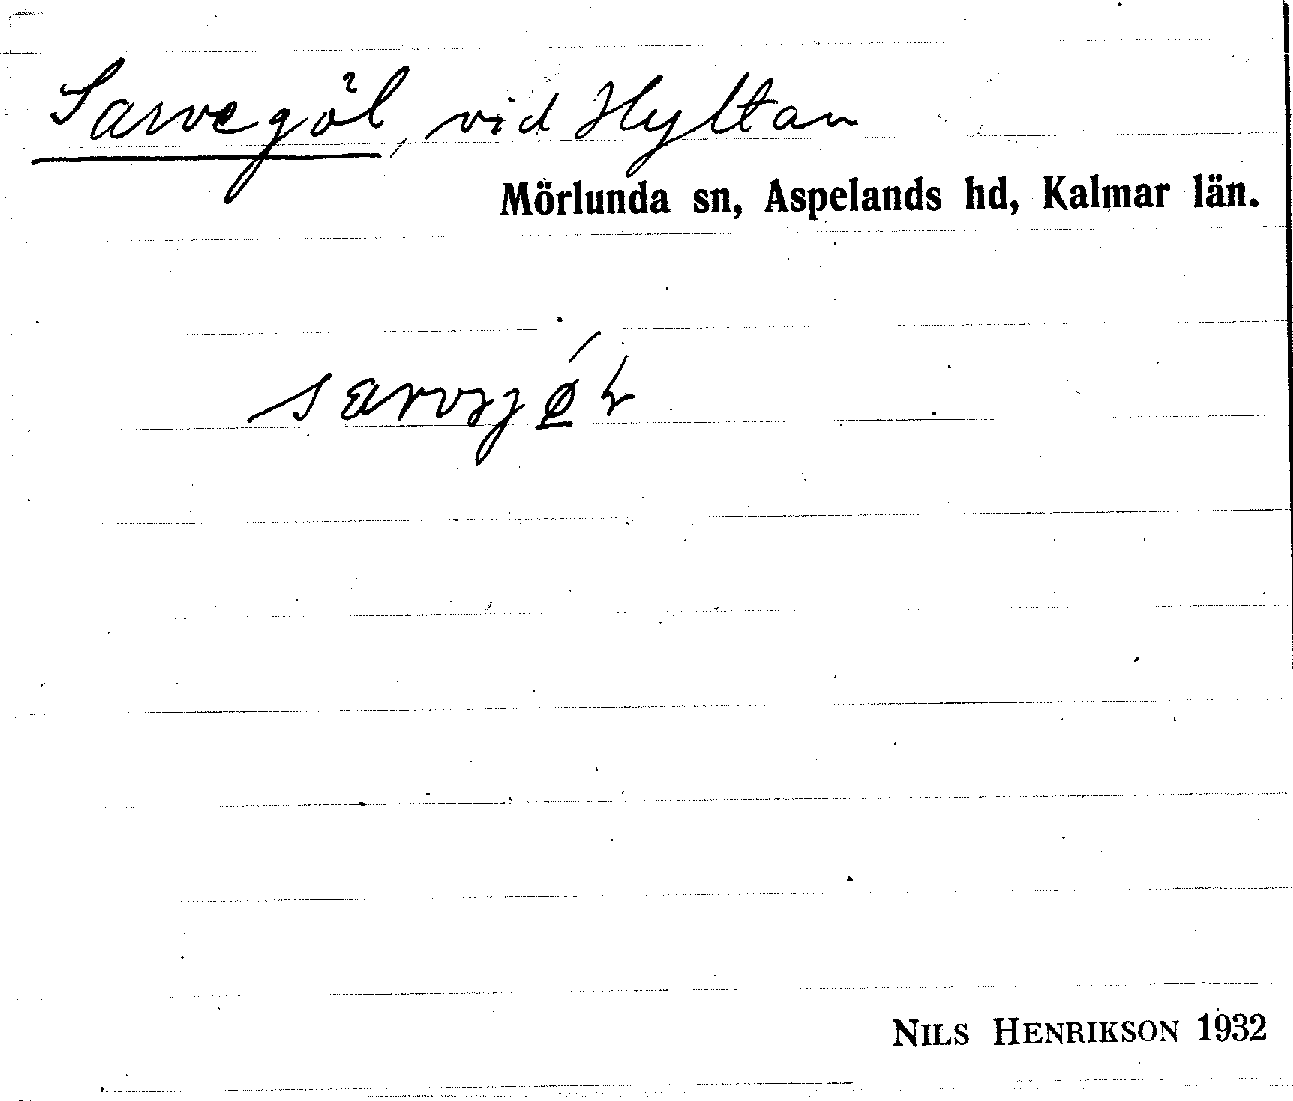 Sarvegöl, vid Hyltan
Mörlunda sn, Aspelands hd, Kalmar län.
NILS HENRIKSON 1932